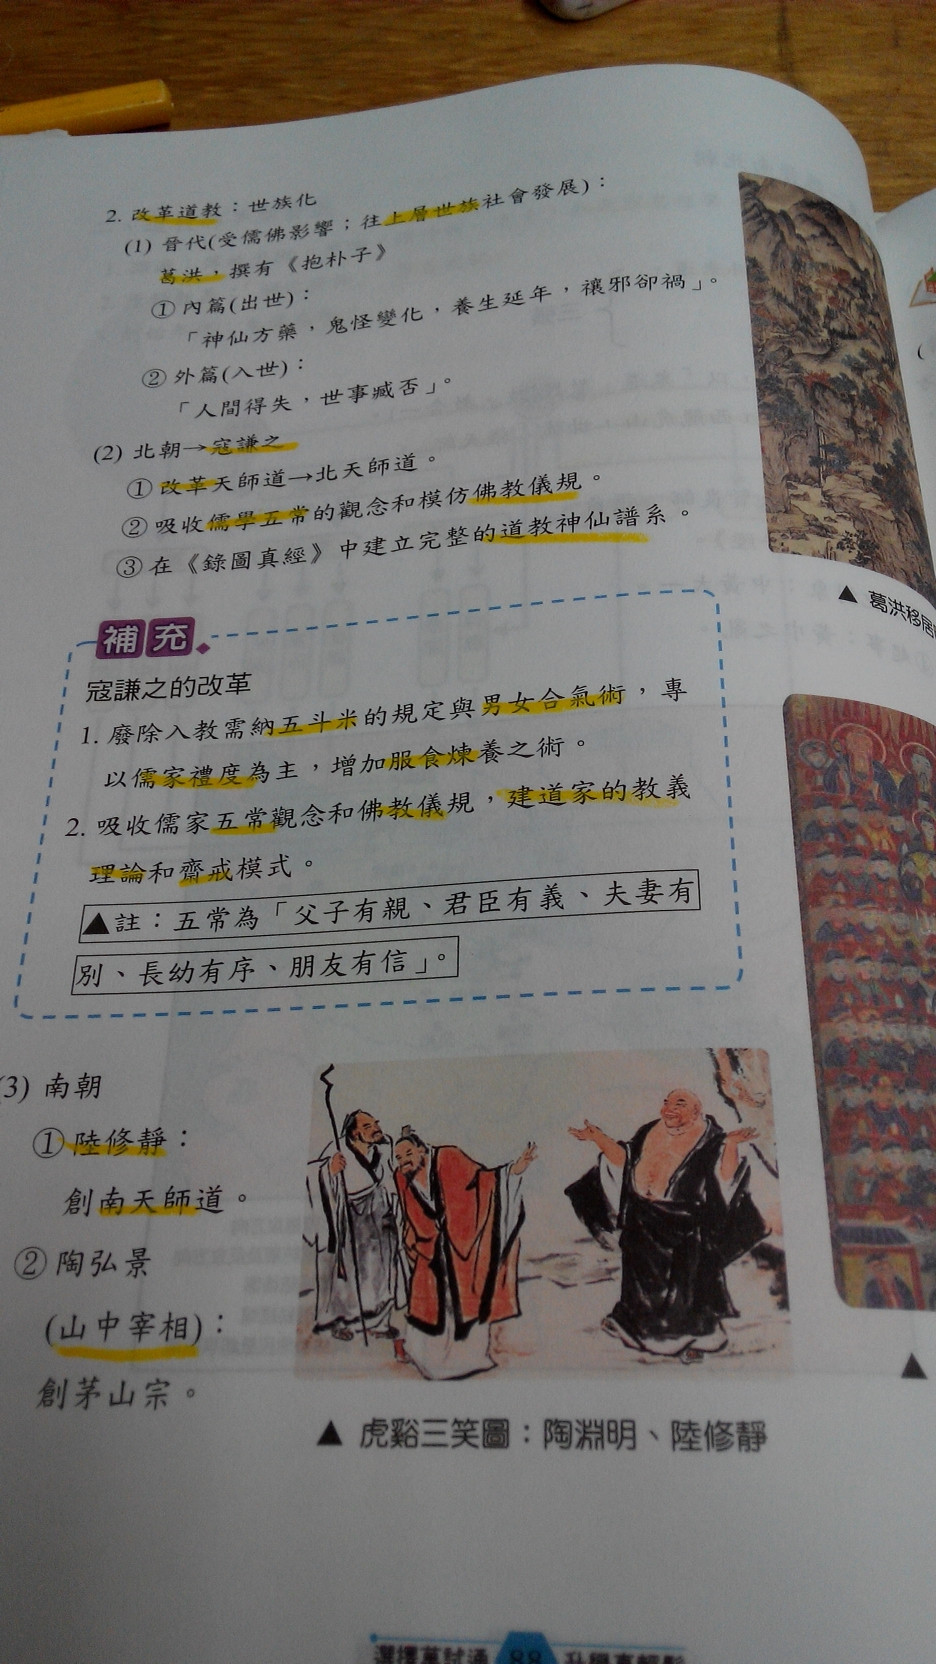 2. 改革道教：世族化
(1) 晉代(受儒佛影響；往上層世族社會發展)：
葛洪，撰有《抱朴子》
① 內篇(出世)：
「神仙方藥，鬼怪變化，養生延年，禳邪卻禍」。
② 外篇(入世)：
「人間得失，世事臧否」。
(2) 北朝→寇謙之
① 改革天師道→北天師道。
② 吸收儒學五常的觀念和模仿佛教儀規。
③ 在《錄圖真經》中建立完整的道教神仙譜系。
▲ 葛洪移居
補充
寇謙之的改革
1. 廢除入教需納五斗米的規定與男女合氣術，專
以儒家禮度為主，增加服食煉養之術。
2. 吸收儒家五常觀念和佛教儀規，建道家的教義
理論和齋戒模式。
▲註：五常為「父子有親、君臣有義、夫妻有
別、長幼有序、朋友有信」。
(3) 南朝
① 陸修靜：
創南天師道。
② 陶弘景
(山中宰相)：
創茅山宗。
▲ 虎谿三笑圖：陶淵明、陸修靜
88